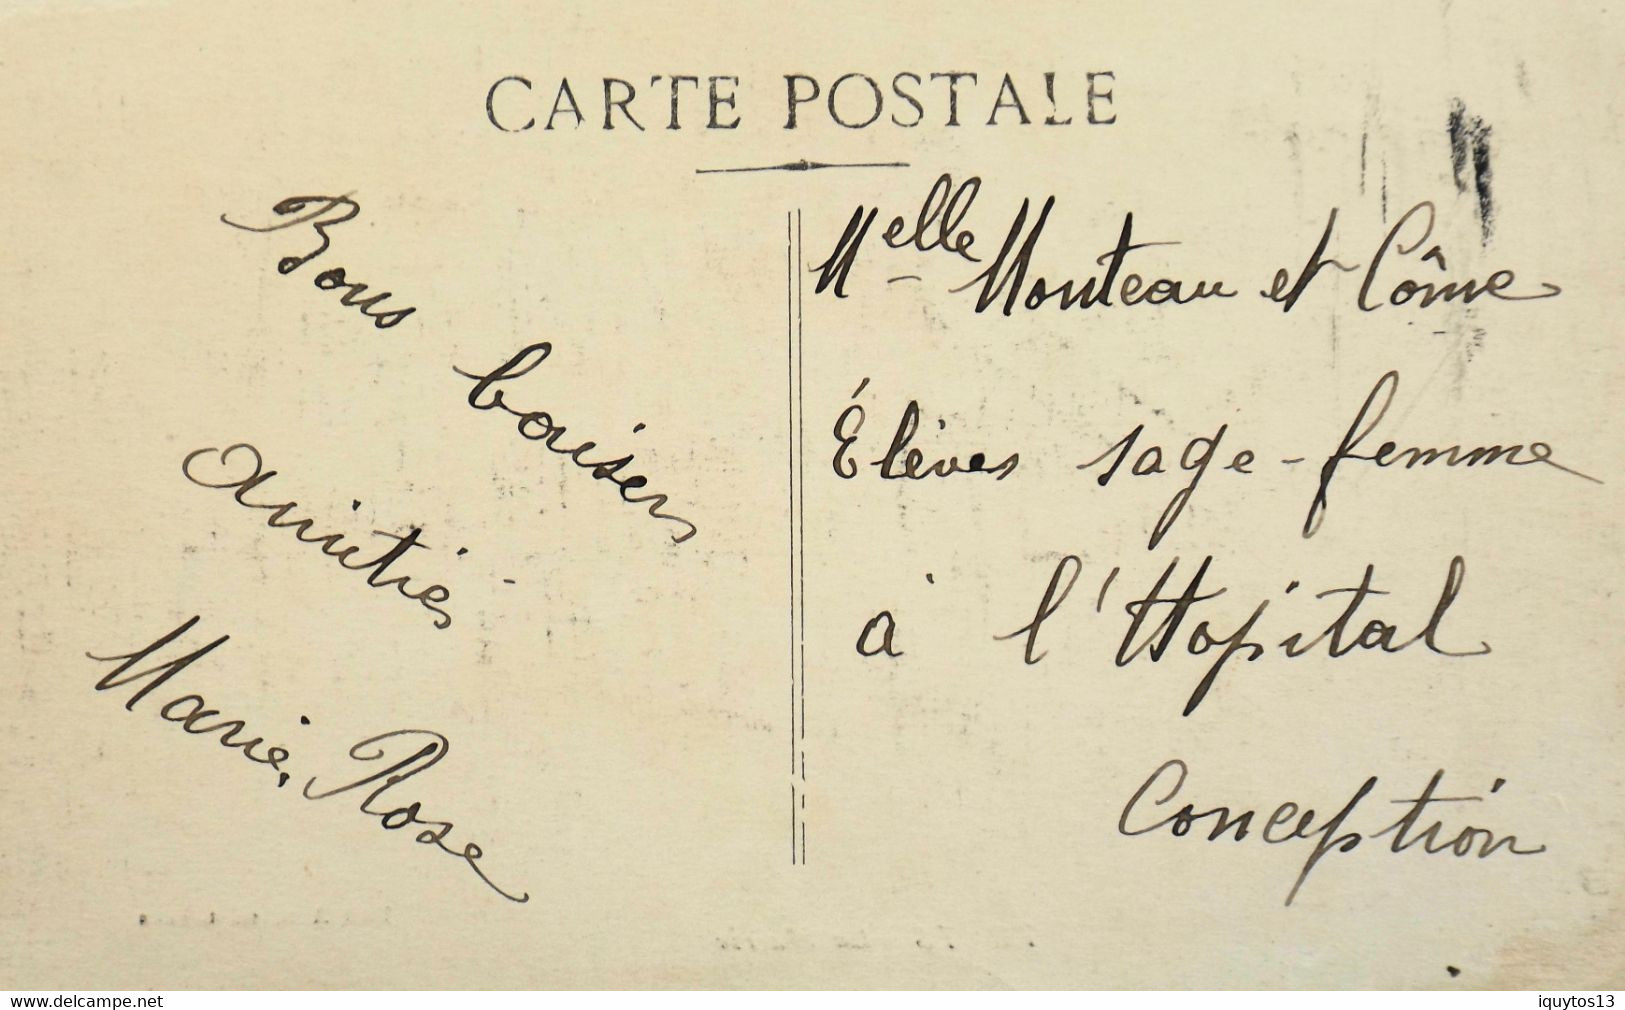 CARTE POSTALE
Bons baisers
amitiés
Marie. Rose
Melle Monteau et Côme
Élèves sage-femme
à l'Hopital
Conception
www.delcampe.net
iquytos13